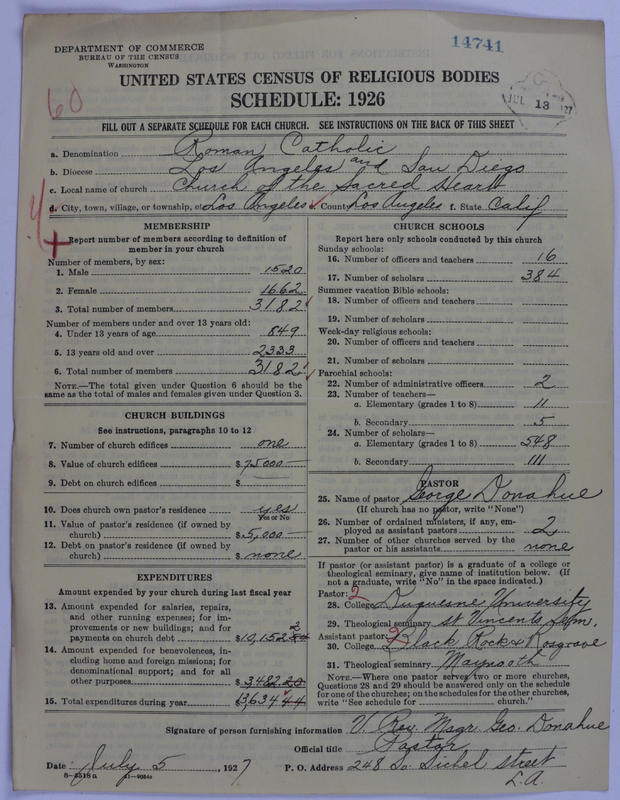 14741
DEPARTMENT OF COMMERCE
BUREAU OF THE CENSUS
WASHINGTON
JUL 13 '27
60
UNITED STATES CENSUS OF RELIGIOUS BODIES
SCHEDULE: 1926
FILL OUT A SEPARATE SCHEDULE FOR EACH CHURCH. SEE INSTRUCTIONS ON THE BACK OF THIS SHEET
a. Denomination Roman Catholic
b. Diocese Los Angeles and San Diego
c. Local name of church Church of the Sacred Heart
d. City, town, village, or township, etc. Los Angeles e. County Los Angeles f. State Calif
MEMBERSHIP
Report number of members according to definition of
member in your church
Number of members, by sex:
1. Male 1520
2. Female 1662
3. Total number of members 3182
Number of members under and over 13 years old:
4. Under 13 years of age 849
5. 13 years old and over 2333
6. Total number of members 3182
NOTE.—The total given under Question 6 should be the
same as the total of males and females given under Question 3.
CHURCH BUILDINGS
See instructions, paragraphs 10 to 12
7. Number of church edifices one
8. Value of church edifices $75000
9. Debt on church edifices $
10. Does church own pastor's residence yes
Yes or No
11. Value of pastor's residence (if owned by
church) $5,000
12. Debt on pastor's residence (if owned by
church) $ none
EXPENDITURES
Amount expended by your church during last fiscal year
13. Amount expended for salaries, repairs,
and other running expenses; for im-
provements or new buildings; and for
payments on church debt $10,152
14. Amount expended for benevolences, in-
cluding home and foreign missions; for
denominational support; and for all
other purposes $3482.20
15. Total expenditures during year 13,634 44
CHURCH SCHOOLS
Report here only schools conducted by this church
Sunday schools:
16. Number of officers and teachers 16
17. Number of scholars 384
Summer vacation Bible schools:
18. Number of officers and teachers
19. Number of scholars
Week-day religious schools:
20. Number of officers and teachers
21. Number of scholars
Parochial schools:
22. Number of administrative officers 2
23. Number of teachers—
a. Elementary (grades 1 to 8) 11
b. Secondary 5
24. Number of scholars—
a. Elementary (grades 1 to 8) 548
b. Secondary 111
PASTOR
25. Name of pastor George Donahue
(If church has no pastor, write "None")
26. Number of ordained ministers, if any, em-
ployed as assistant pastors 2
27. Number of other churches served by the
pastor or his assistants none
If pastor (or assistant pastor) is a graduate of a college or
theological seminary, give name of institution below. (If
not a graduate, write "No" in the space indicated.)
Pastor: 2
28. College Duquesne University
29. Theological seminary St Vincents Sem.
Assistant pastor: 2
30. College Black Rock & Rosgrave
31. Theological seminary Maynooth
NOTE.—Where one pastor serves two or more churches,
Questions 28 and 29 should be answered only on the schedule
for one of the churches; on the schedules for the other churches,
write "See schedule for church."
Signature of person furnishing information V. Rev. Msgr. Geo. Donahue
Official title Pastor
Date July 5, 1927
P. O. Address 248 So. Sichel street
L.A.
8—5518a